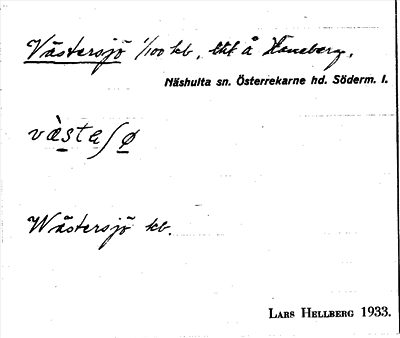 Västersjö 1/100 kb, tht å Haneberg.
Näshulta sn. Österrekarne hd. Söderm. l.
vä̀steʃø
Wästersjö kb.
LARS HELLBERG 1933.